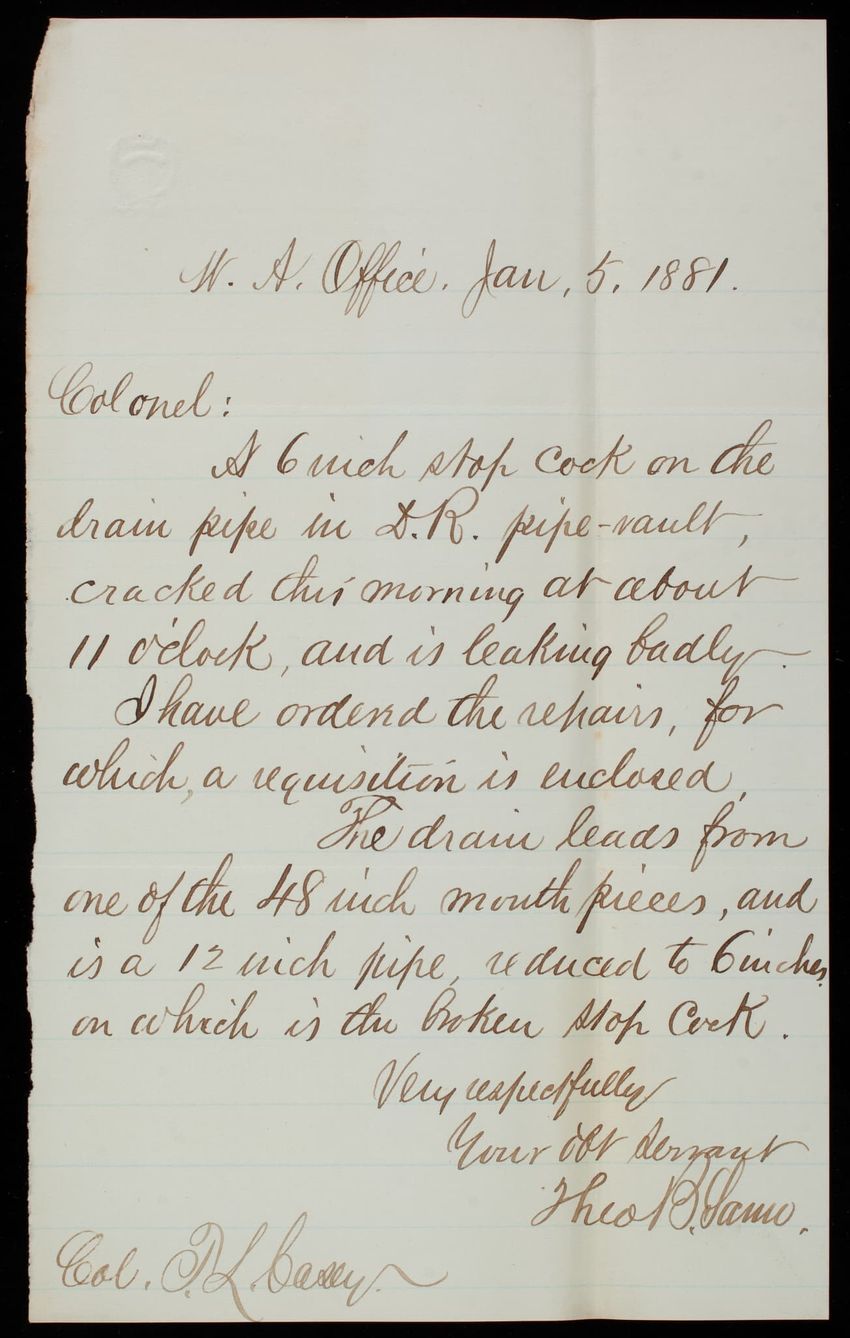 W. A. Office. Jan, 5. 1881.
Colonel:
A 6 inch stop cock on the
drain pipe in D.R. pipe-vault,
cracked this morning at about
11 o'clock, and is leaking badly.
I have ordered the repairs, for
which, a requisition is enclosed,
The drain leads from
one of the 48 inch mouth pieces, and
is a 12 inch pipe, reduced to 6 inches,
on which is the broken stop cock.
Very respectfully
Your obt servant
Theo B. Samo.
Col. T. L. Casey.